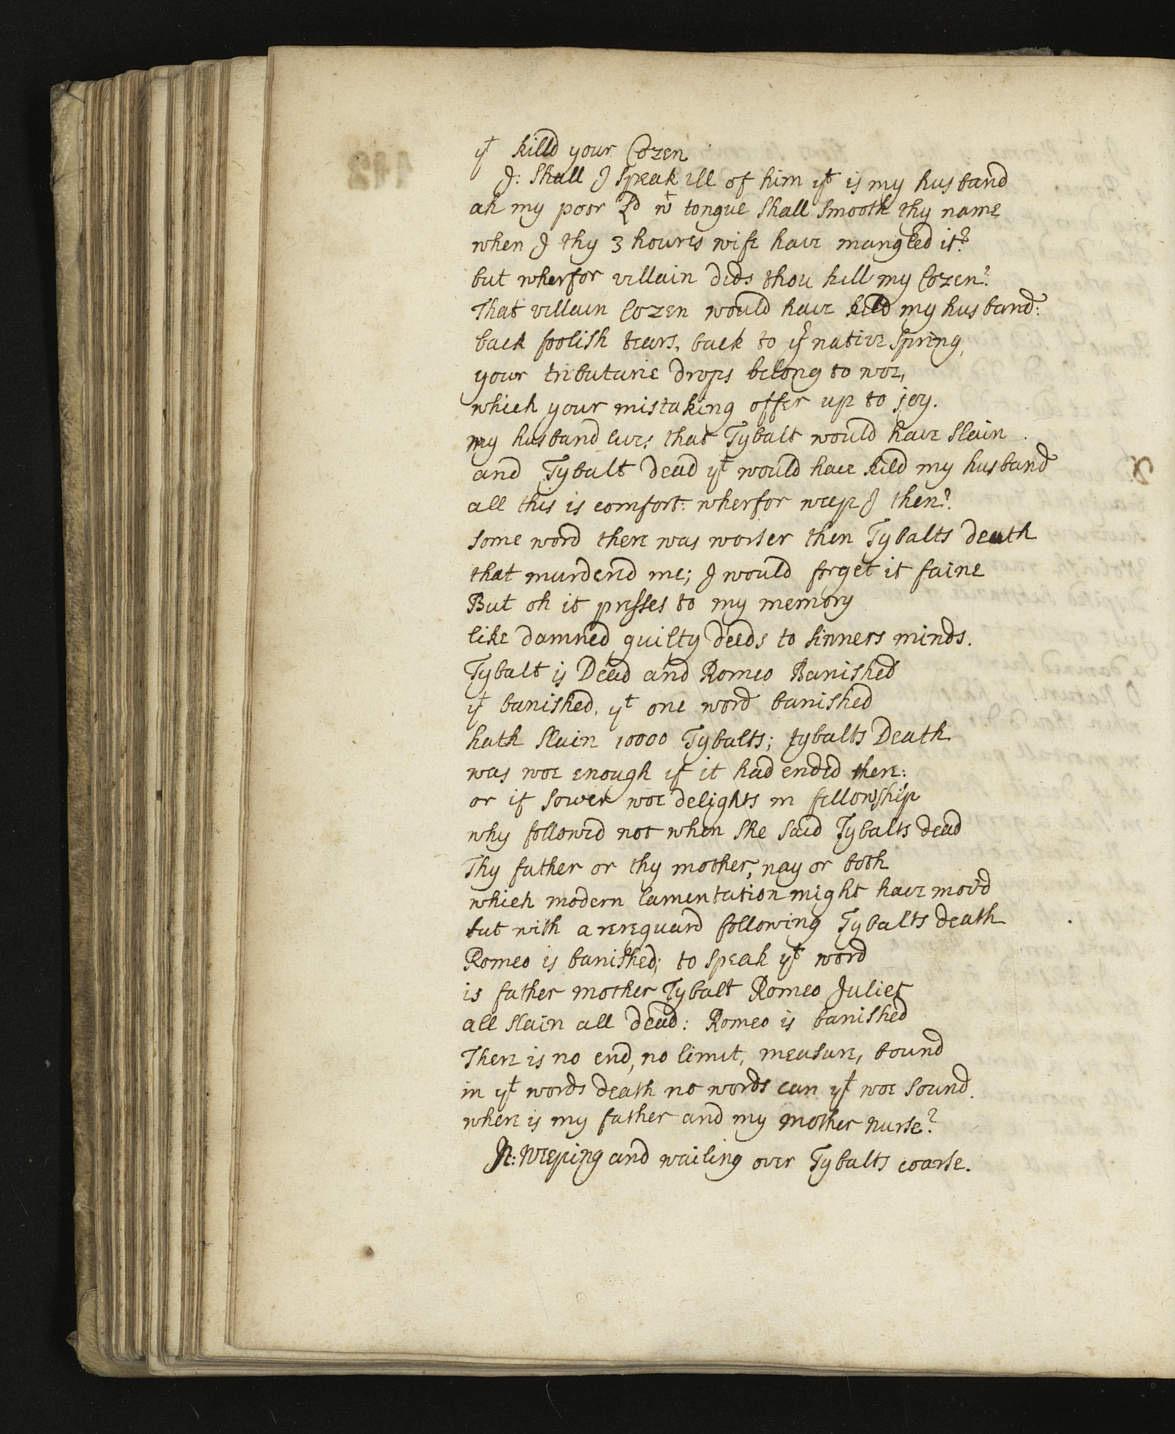 yt killd your Cozen
J: Shall J speak ill of him yt is my husband
ah my poor Ld wt tongue shall smooth thy name
when J thy 3 houres wife have mangled it?
but wherfor villain dids thou kill my Cozen?
That villain Cozen would have kild my husband:
back foolish tears, back to yr native spring,
your tributarie drops belong to woe,
which your mistaking offer up to joy.
my husband lives that Tybalt would have slain
and Tybalt dead yt would have kild my husband
all this is comfort: wherfor weep J then?
some word there was worser then Tybalts death
that murdered me; J would forget it faine
But oh it presses to my memory
like damned guilty deeds to sinners minds.
Tybalt is Dead and Romeo Banished
yt banished, yt one word banished
hath slain 10000 Tybalts; tybalts Death
was woe enough if it had ended there:
or if sower woe delights in fellowship
why followed not when she said Tybalts dead
Thy father or thy mother, nay or both
which modern lamentation might have mov'd
but with a rereguard following Tybalts death
Romeo is banished; to speak yt word
is father mother Tybalt Romeo Juliet
all slain all dead: Romeo is banished
There is no end, no limit, measure, bound
in yt words death no words can yt woe sound.
where is my father and my mother nurse?
N: Weeping and wailing over Tybalts coarse.